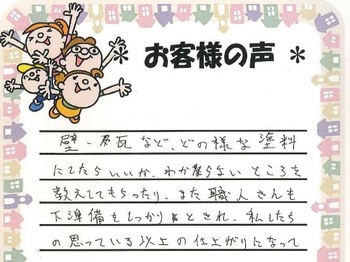 * お客様の声 *
壁・瓦など、どの様な塗料
にしたらいいか、わからない ところを
教えてもらったり、また 職人さんも
下準備もしっかりとされ、私したち
の思っている以上の仕上がりになって